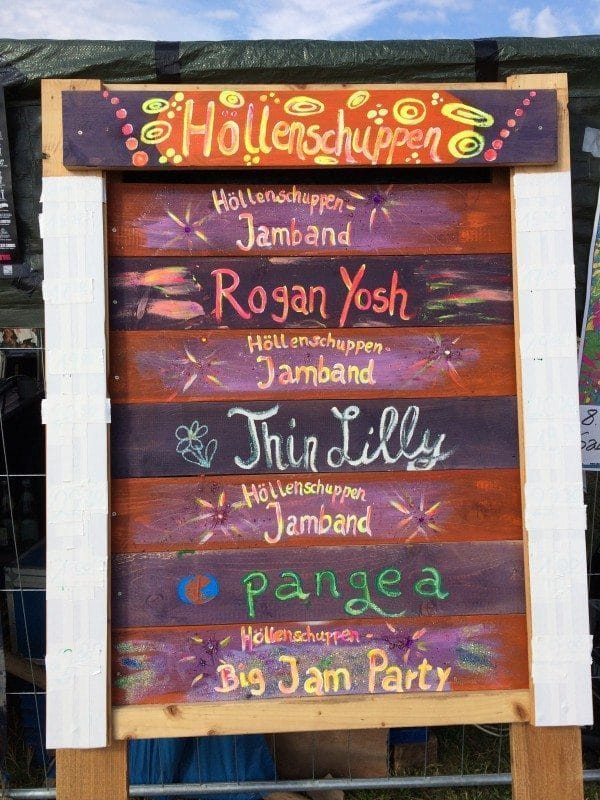 Höllenschuppen
Höllenschuppen-
Jamband
Rogan Yosh
Höllenschuppen-
Jamband
Thin Lilly
Höllenschuppen
Jamband
pangea
Höllenschuppen-
Big Jam Party
8.